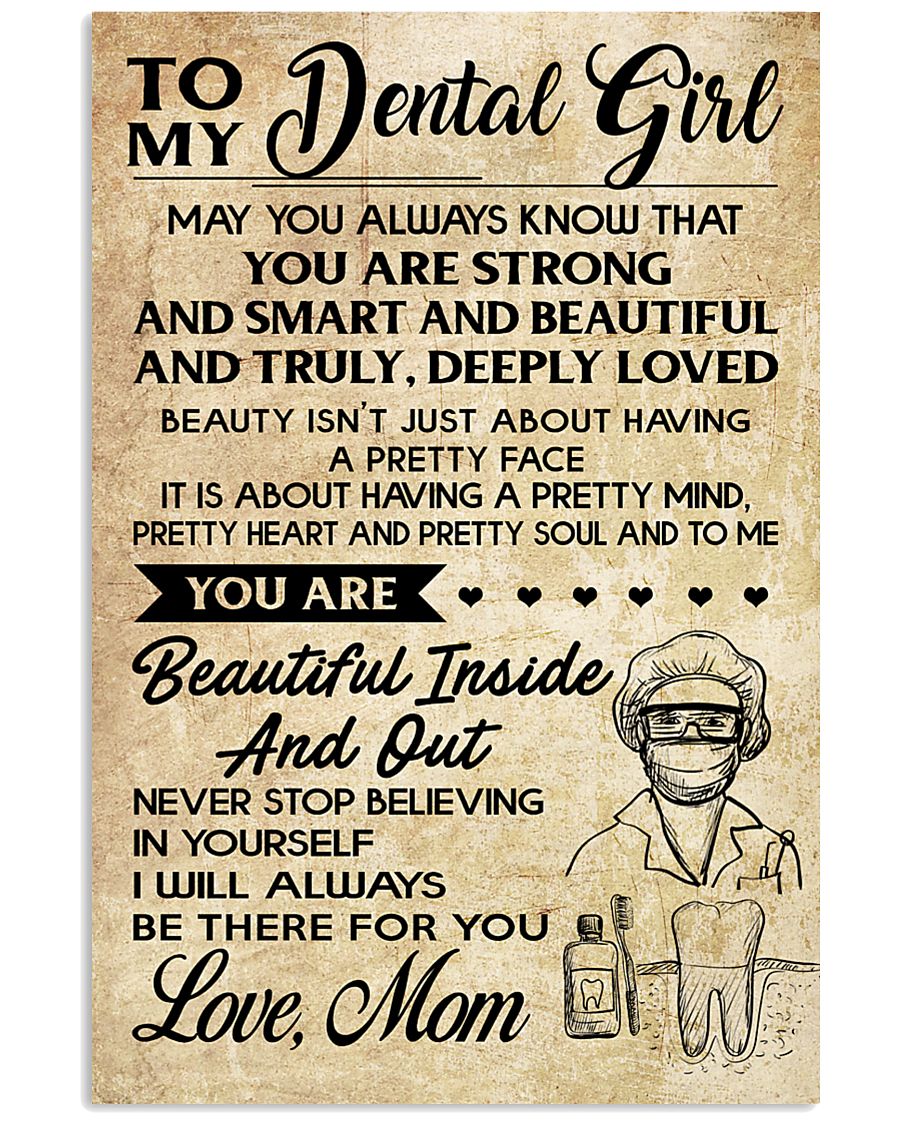 TO MY Dental Girl
MAY YOU ALWAYS KNOW THAT
YOU ARE STRONG
AND SMART AND BEAUTIFUL
AND TRULY, DEEPLY LOVED
BEAUTY ISN'T JUST ABOUT HAVING
A PRETTY FACE
IT IS ABOUT HAVING A PRETTY MIND,
PRETTY HEART AND PRETTY SOUL AND TO ME
YOU ARE
Beautiful Inside
And Out
NEVER STOP BELIEVING
IN YOURSELF
I WILL ALWAYS
BE THERE FOR YOU
Love, Mom